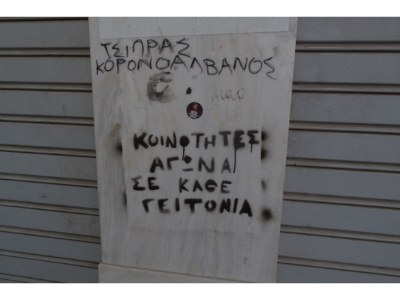 ΤΣΙΠΡΑΣ
ΚΟΡΟΝΟΑΛΒΑΝΟΣ
ΚΟΙΝΟΤΗΤΕΣ
ΑΓΩΝΑ
ΣΕ ΚΑΘΕ
ΓΕΙΤΟΝΙΑ